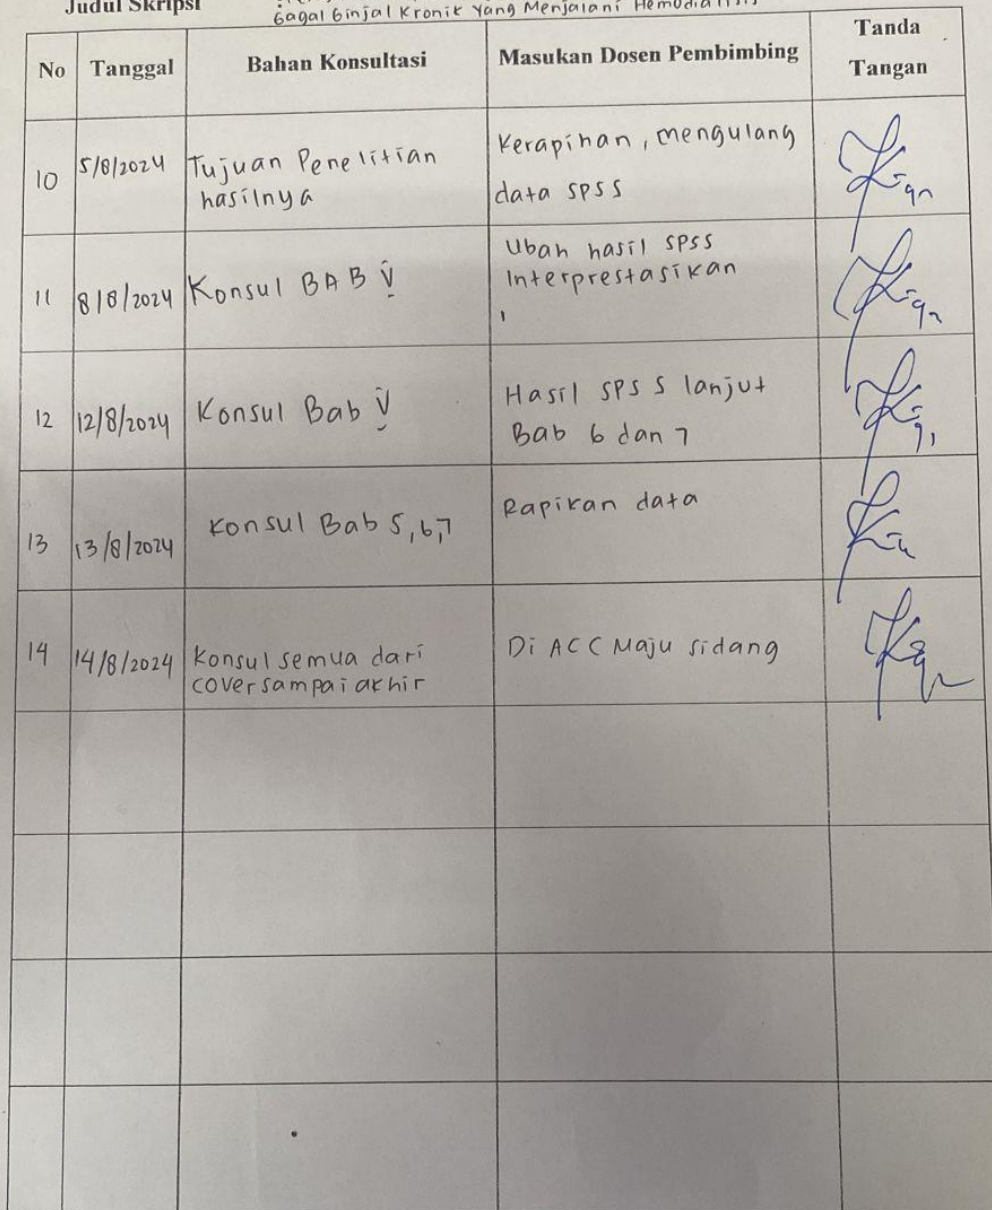 Judul Skripsi
Gagal Ginjal Kronik Yang Menjalani Hemodialisis
No Tanggal Bahan Konsultasi Masukan Dosen Pembimbing Tanda Tangan
10 5/8/2024 Tujuan Penelitian hasilnya Kerapihan, mengulang data SPSS
11 8/8/2024 Konsul BAB V Ubah hasil SPSS Interprestasikan
12 12/8/2024 Konsul Bab V Hasil SPSS lanjut Bab 6 dan 7
13 13/8/2024 Konsul Bab 5,6,7 Rapikan data
14 14/8/2024 Konsul semua dari cover sampai akhir Di ACC Maju sidang